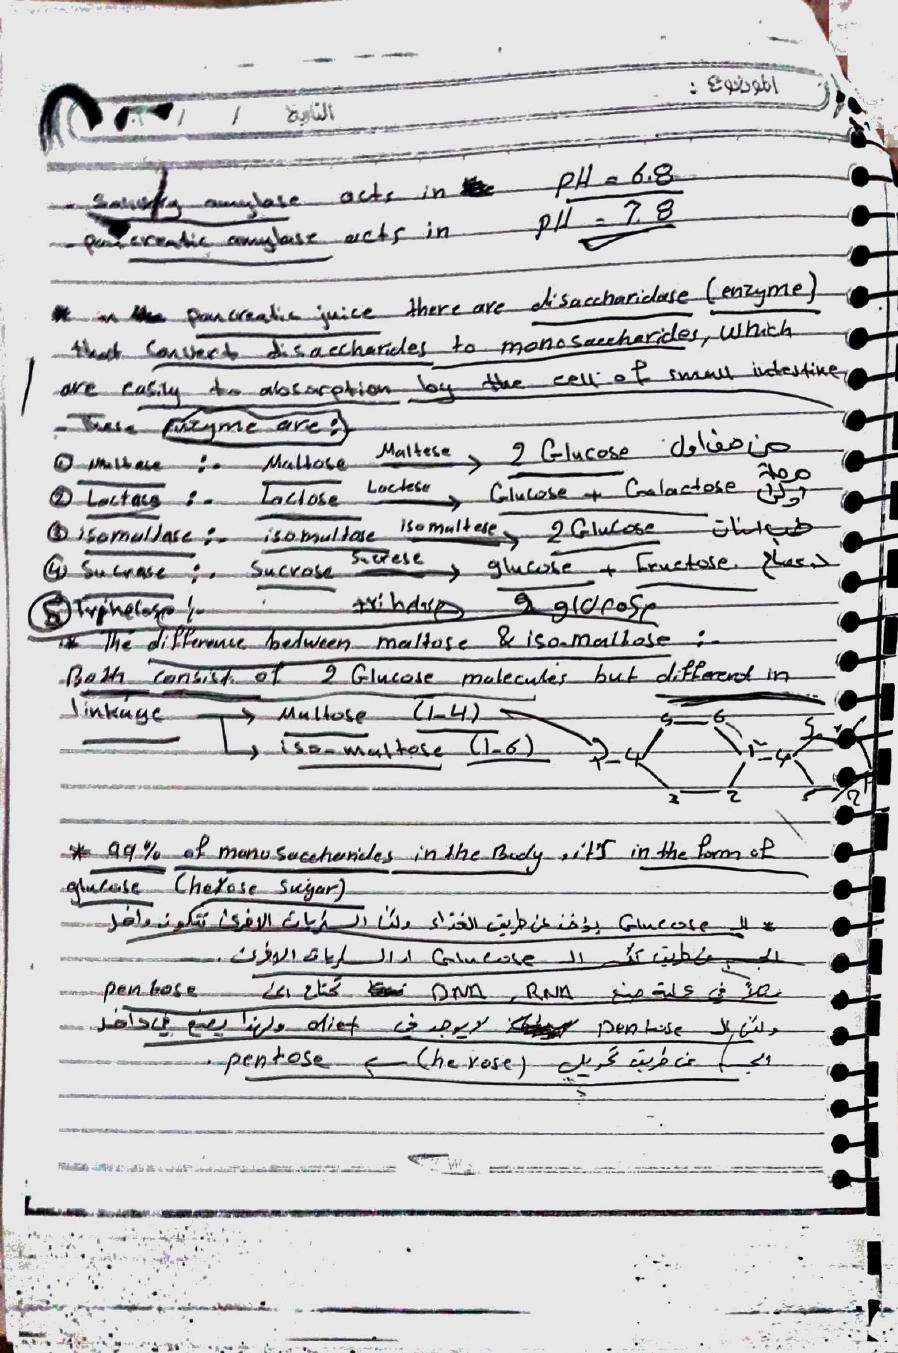 الموضوع :
التاريخ / /
- Salivary amylase acts in pH = 6.8
- pancreatic amylase acts in pH = 7.8
* in the pancreatic juice there are disaccharidase (enzyme)
that convert disaccharides to monosaccharides, which
are easily to absorption by the cell of small intestine,
- These enzyme are :
① Maltase :- Maltose Maltese → 2 Glucose
② Lactase :- Lactose Lactese → Glucose + Galactose
③ isomaltase :- isomaltose isomaltese → 2 Glucose
④ Sucrase :- Sucrose Sucrese → glucose + Fructose.
⑤ 2 glucose
* The difference between maltose & iso-maltose :-
Both consist of 2 Glucose molecules but different in
linkage → Maltose (1-4)
→ iso-maltose (1-6)
* 99% of monosaccharides in the Body, it's in the form of
glucose (hexose sugar)
* الـ Glucose يؤخذ عن طريق الغذاء ولكن السكريات الاخرى تتكون داخل
الجسم عن طريق الـ Glucose السكريات الاخرى .
مثلاً في عملية صنع DNA, RNA نحتاج الى pentose
ولكن الـ pentose لايوجد في diet ولهذا يصنع في داخل
الجسم عن طريق تحويل (hexose) ← pentose .